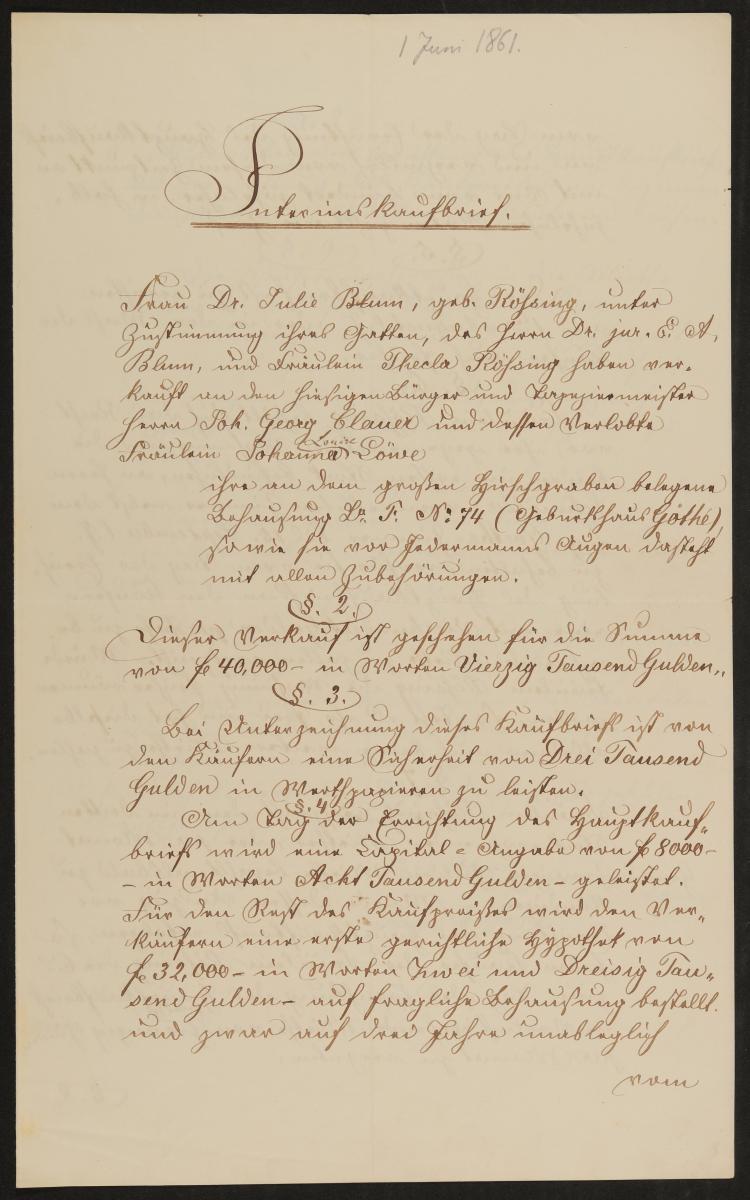 1 Juni 1861.
Interimskaufbrief.
Frau Dr. Julie Blum, geb. Rößing, unter
Zustimmung ihres Gatten, des Herrn Dr. jur. E. A.
Blum, und Fräulein Thecla Rößing haben ver-
kauft an den hiesigen Bürger und Tapeziermeister
Herrn Joh. Georg Clauer und dessen Verlobte
Louise
Fräulein Johanna Löwe
ihre an dem großen Hirschgraben belegene
Behausung Lr. F. No. 74 (Geburtshaus Göthe),
sowie sie vor Jedermanns Augen dasteht
mit allen Zubehörungen.
§. 2.
Dieser Verkauf ist geschehen für die Summe
von fl 40,000 – in Worten Vierzig Tausend Gulden.,
§. 3.
Bei Unterzeichnung dieses Kaufbriefs ist von
den Käufern eine Sicherheit von Drei Tausend
Gulden in Werthpapieren zu leisten.
§. 4
Am Tag der Errichtung des Hauptkauf„
briefs wird eine Capital = Angabe von fl 8000 –
– in Worten Acht Tausend Gulden – geleistet.
Für den Rest des Kaufpreißes wird den Ver„
käufern eine erste gerichtliche Hypothek von
fl 32,000 – in Worten Zwei und Dreisig Tau„
send Gulden – auf fragliche Behausung bestellt.
und zwar auf drei Jahre unableglich
vom